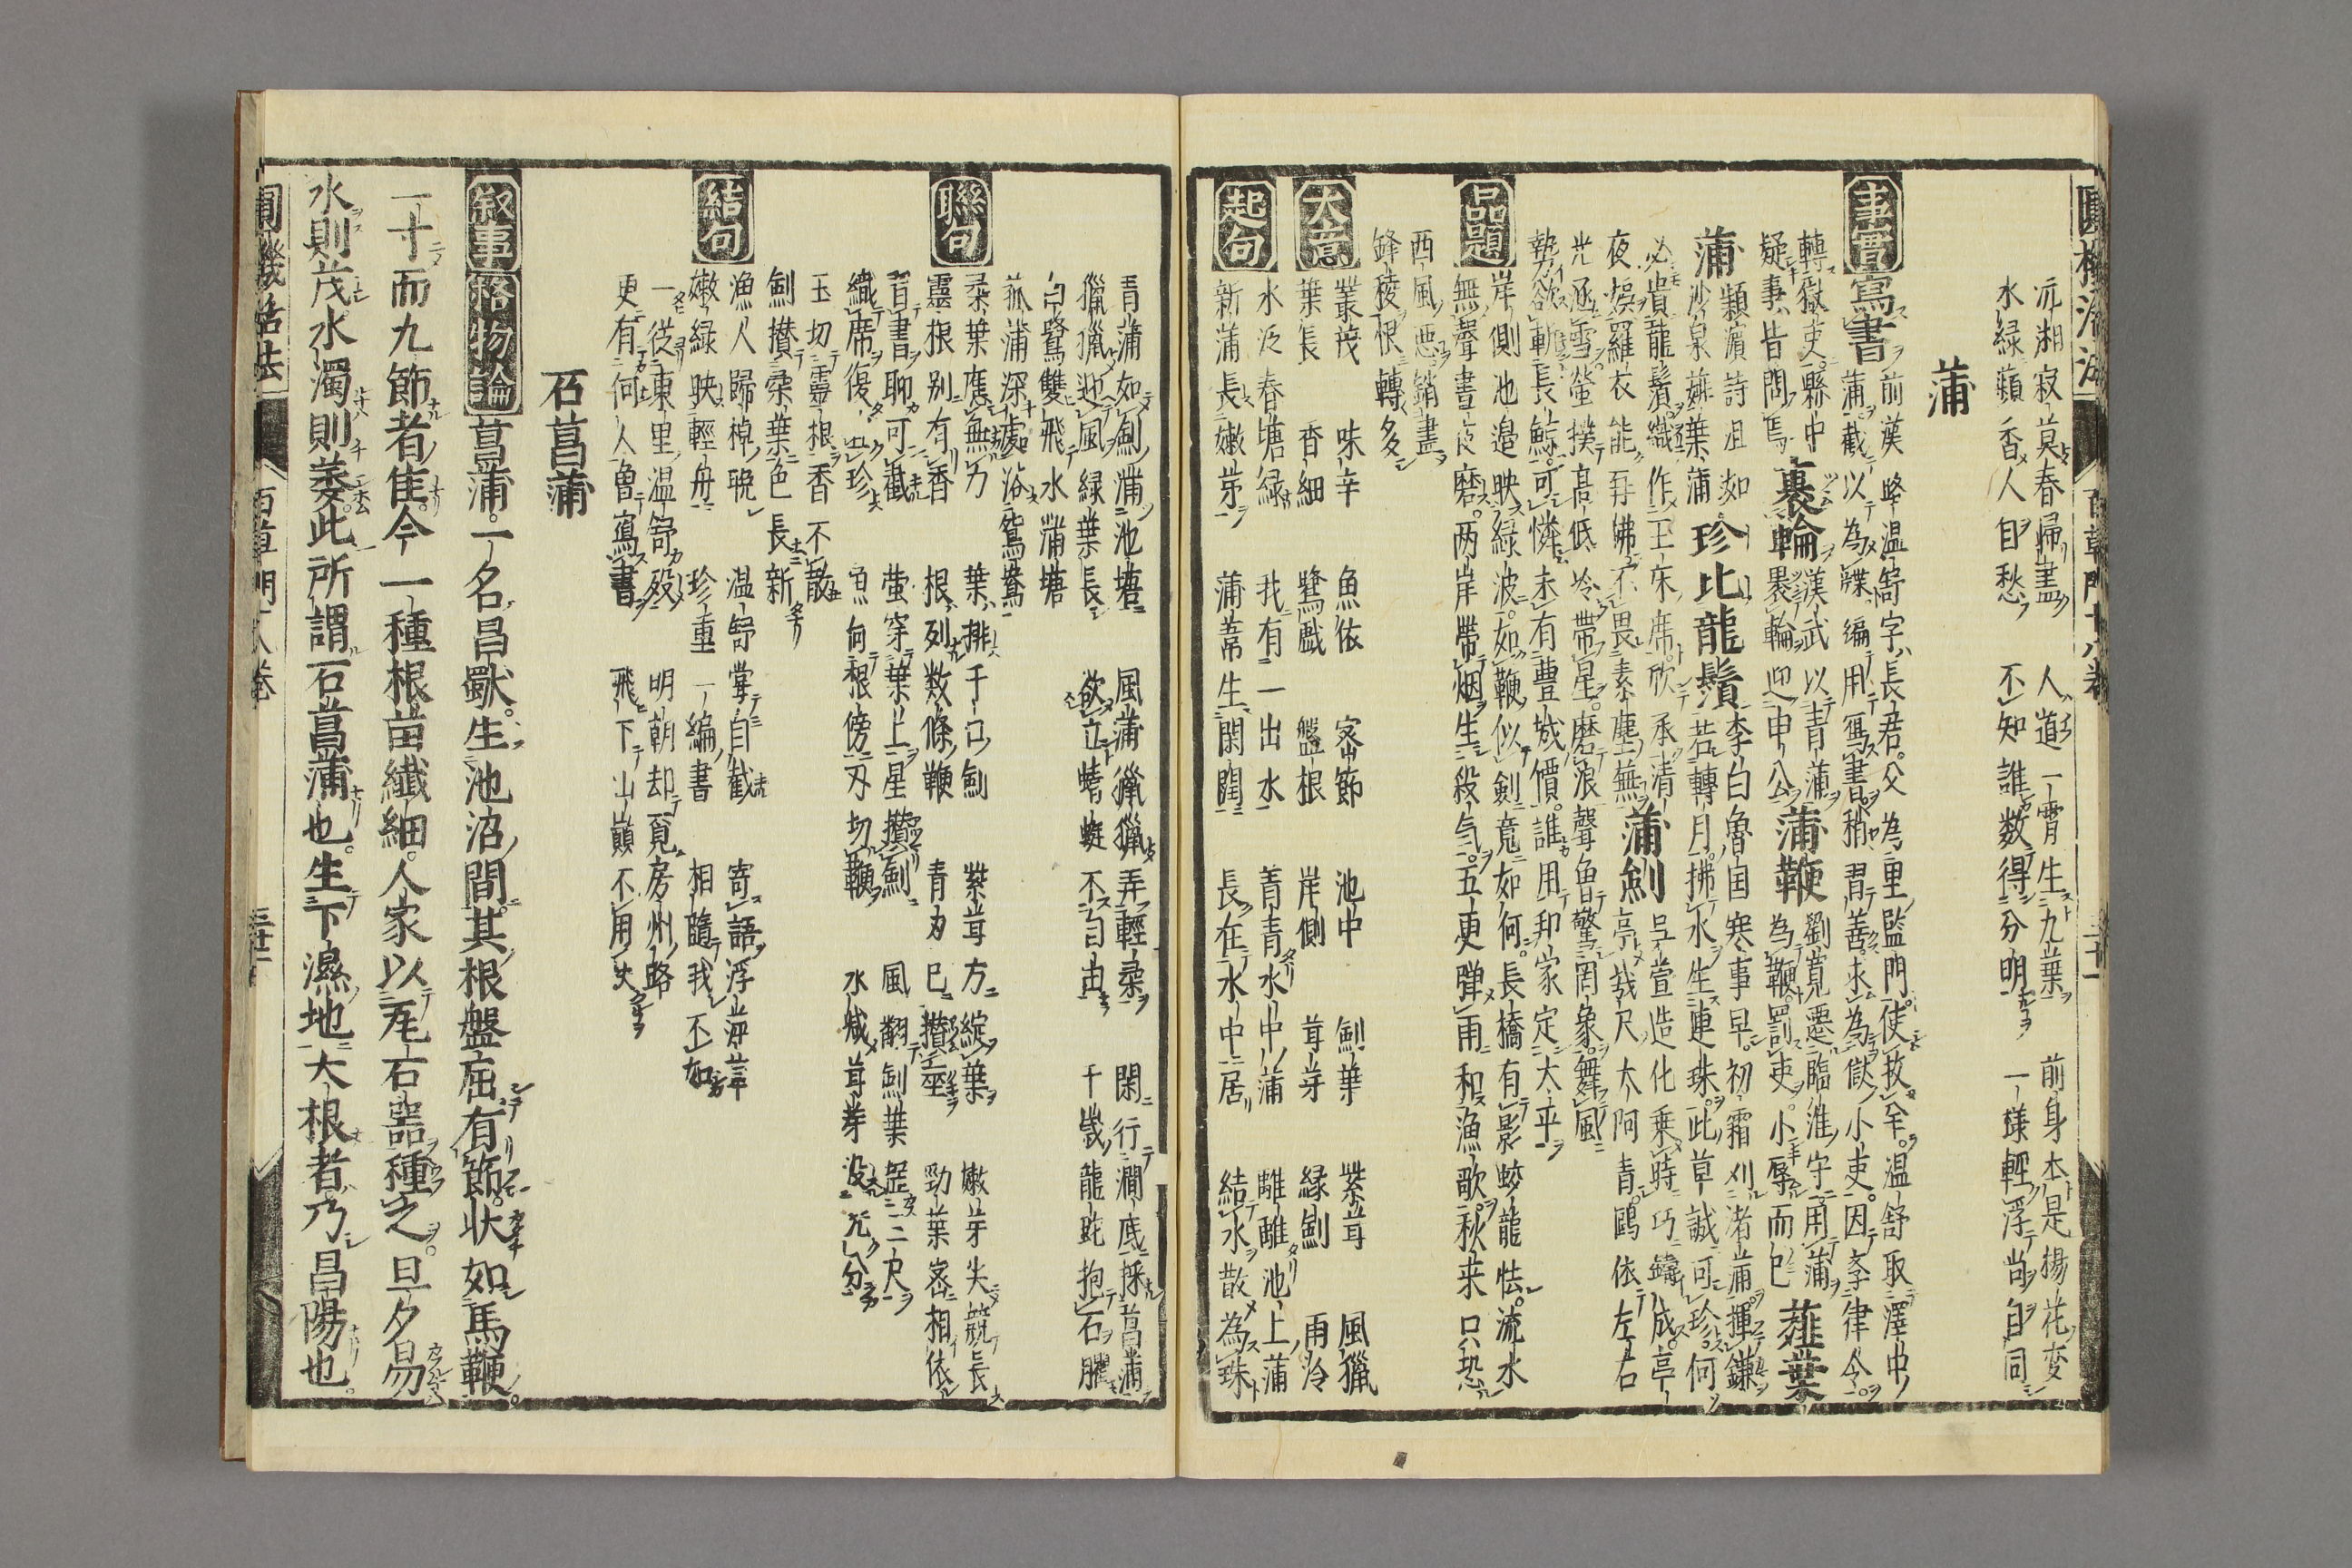 圓機活法 百草門十八卷 三十一
沅湘寂莫春歸盡 人道一霄生九葉 前身本是揚花变
水緑蘋香人自愁 不知誰数得分明 一様輕浮尚自同
蒲
事實 寫書 前漢路温舒字長君父為里監門使牧羊温舒取澤中
蒲截以為牒編用寫書稍習善求為獄小吏因李律令
轉獄吏縣中
疑事皆問焉 裹輪 漢武以青蒲
裹輪迎申公 蒲鞭 劉寛憲臨淮守用蒲
為鞭罰吏小辱而已 薤葉
頴濱詩沮如
沙泉薤葉蒲 珍比龍鬚 李白魯国寒事早初霜刈渚蒲揮鎌
若轉月拂水生連珠此草誠可珍何
必貴龍鬚織作玉床席欣承清
夜娯羅衣能再拂不畏素塵蕪 蒲劍 呈萱造化乗時巧鑄成亭
亭哉尺太阿青鷗依左右
光涵雪蛍撲高低冷帶星磨浪聲魚驚罔象舞風
勢欲斬長鯨可憐未有豊城價誰用却家定大平
品題 岸側池邉映緑波如鞭似劍竟如何長橋有影蛟龍怯流水
無聲晝夜磨两岸帶烟生殺气五更弾雨和漁歌秋来只恐
西風悪銷盡
鋒稜根轉多
大意 叢茂 味辛 魚依 密節 池中 劍葉 紫茸 風獵
葉長 香細 鷺戯 盤根 岸側 茸芽 緑劍 雨冷
起句 水泛春塘緑 我有一出水 青青水中蒲 離離池上蒲
新蒲長嫩芽 蒲蒻生閑閏 長在水中居 結水散為珠
青蒲如劍滿池塘 風蒲獵獵弄輕柔 閑行澗底採菖蒲
獵獵迎風緑葉長 欲立蜻蜓不自由 千歳龍蛇抱石臞
白鷺雙飛水蒲塘
菰蒲深處浴鴛鴦
聯句 柔葉應無力 葉排千口劍 紫茸方綻葉 嫩芽尖競長
靈根别有香 根列数條鞭 青刃已攅莖 勁葉密相依
習書聊可截 蛍穿葉上星攅劍 風翻劍葉盈二尺
織席復出珍 魚向根傍刃切鞭 水熾茸芽没八分
玉切靈根香不散
劍攅柔葉色長新
結句 漁人歸棹晩 温舒掌自截 寄語浮萍草
嫩緑映輕舟 珍重一編書 相隨我不如
一従東里温舒殁 明朝却覓房州路
更有何人魯寫書 飛下山巓不用失
石菖蒲
叙事 格物論 菖蒲一名昌歜生池沼間其根盤屈有節状如馬鞭
一寸而九節者佳今一種根苗纎細人家以瓦石器種之旦夕易
水則茂水濁則萎此所謂石菖蒲也生下濕地大根者乃昌陽也
圓機活法 百草門十八卷 三十二